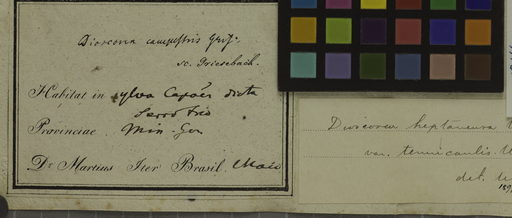 Dioscorea campestris Grisb.
sc. Griesebach.
Habitat in sylva Capões dicta
Serro frio
Provinciae Min. Ger
Dr. Martius Iter Brasil. Maio
Dioscorea heptaneura
var. tenuicaulis
det.
189